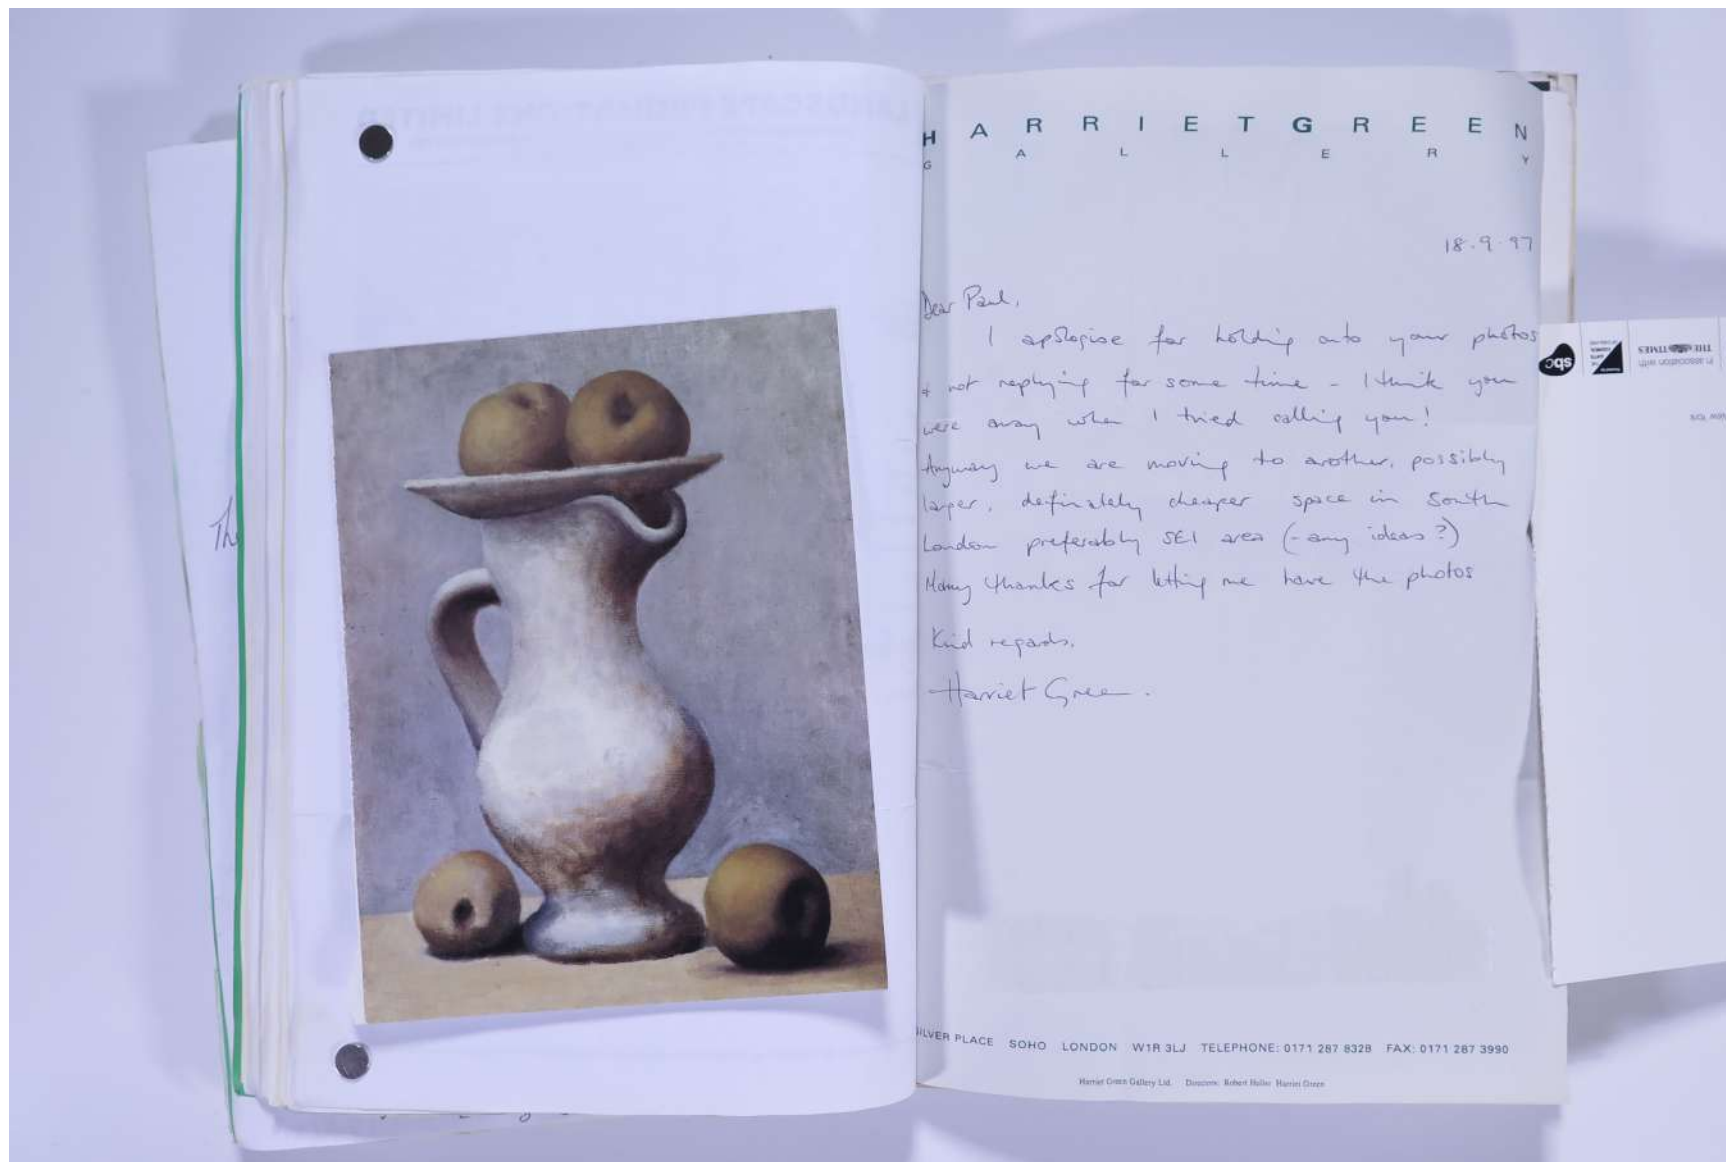 The
HARRIET GREEN
GALLERY
18.9.97
Dear Paul,
I apologise for holding onto your photos
& not replying for some time - I think you
were away when I tried calling you!
Anyway we are moving to another, possibly
larger, definately cheaper space in South
London preferably SE1 area (- any ideas?)
Many thanks for letting me have the photos
Kind regards,
Harriet Green.
SILVER PLACE SOHO LONDON W1R 3LJ TELEPHONE: 0171 287 8328 FAX: 0171 287 3990
Harriet Green Gallery Ltd. Directors: Robert Heller Harriet Green
sbc
THE TIMES
in association with